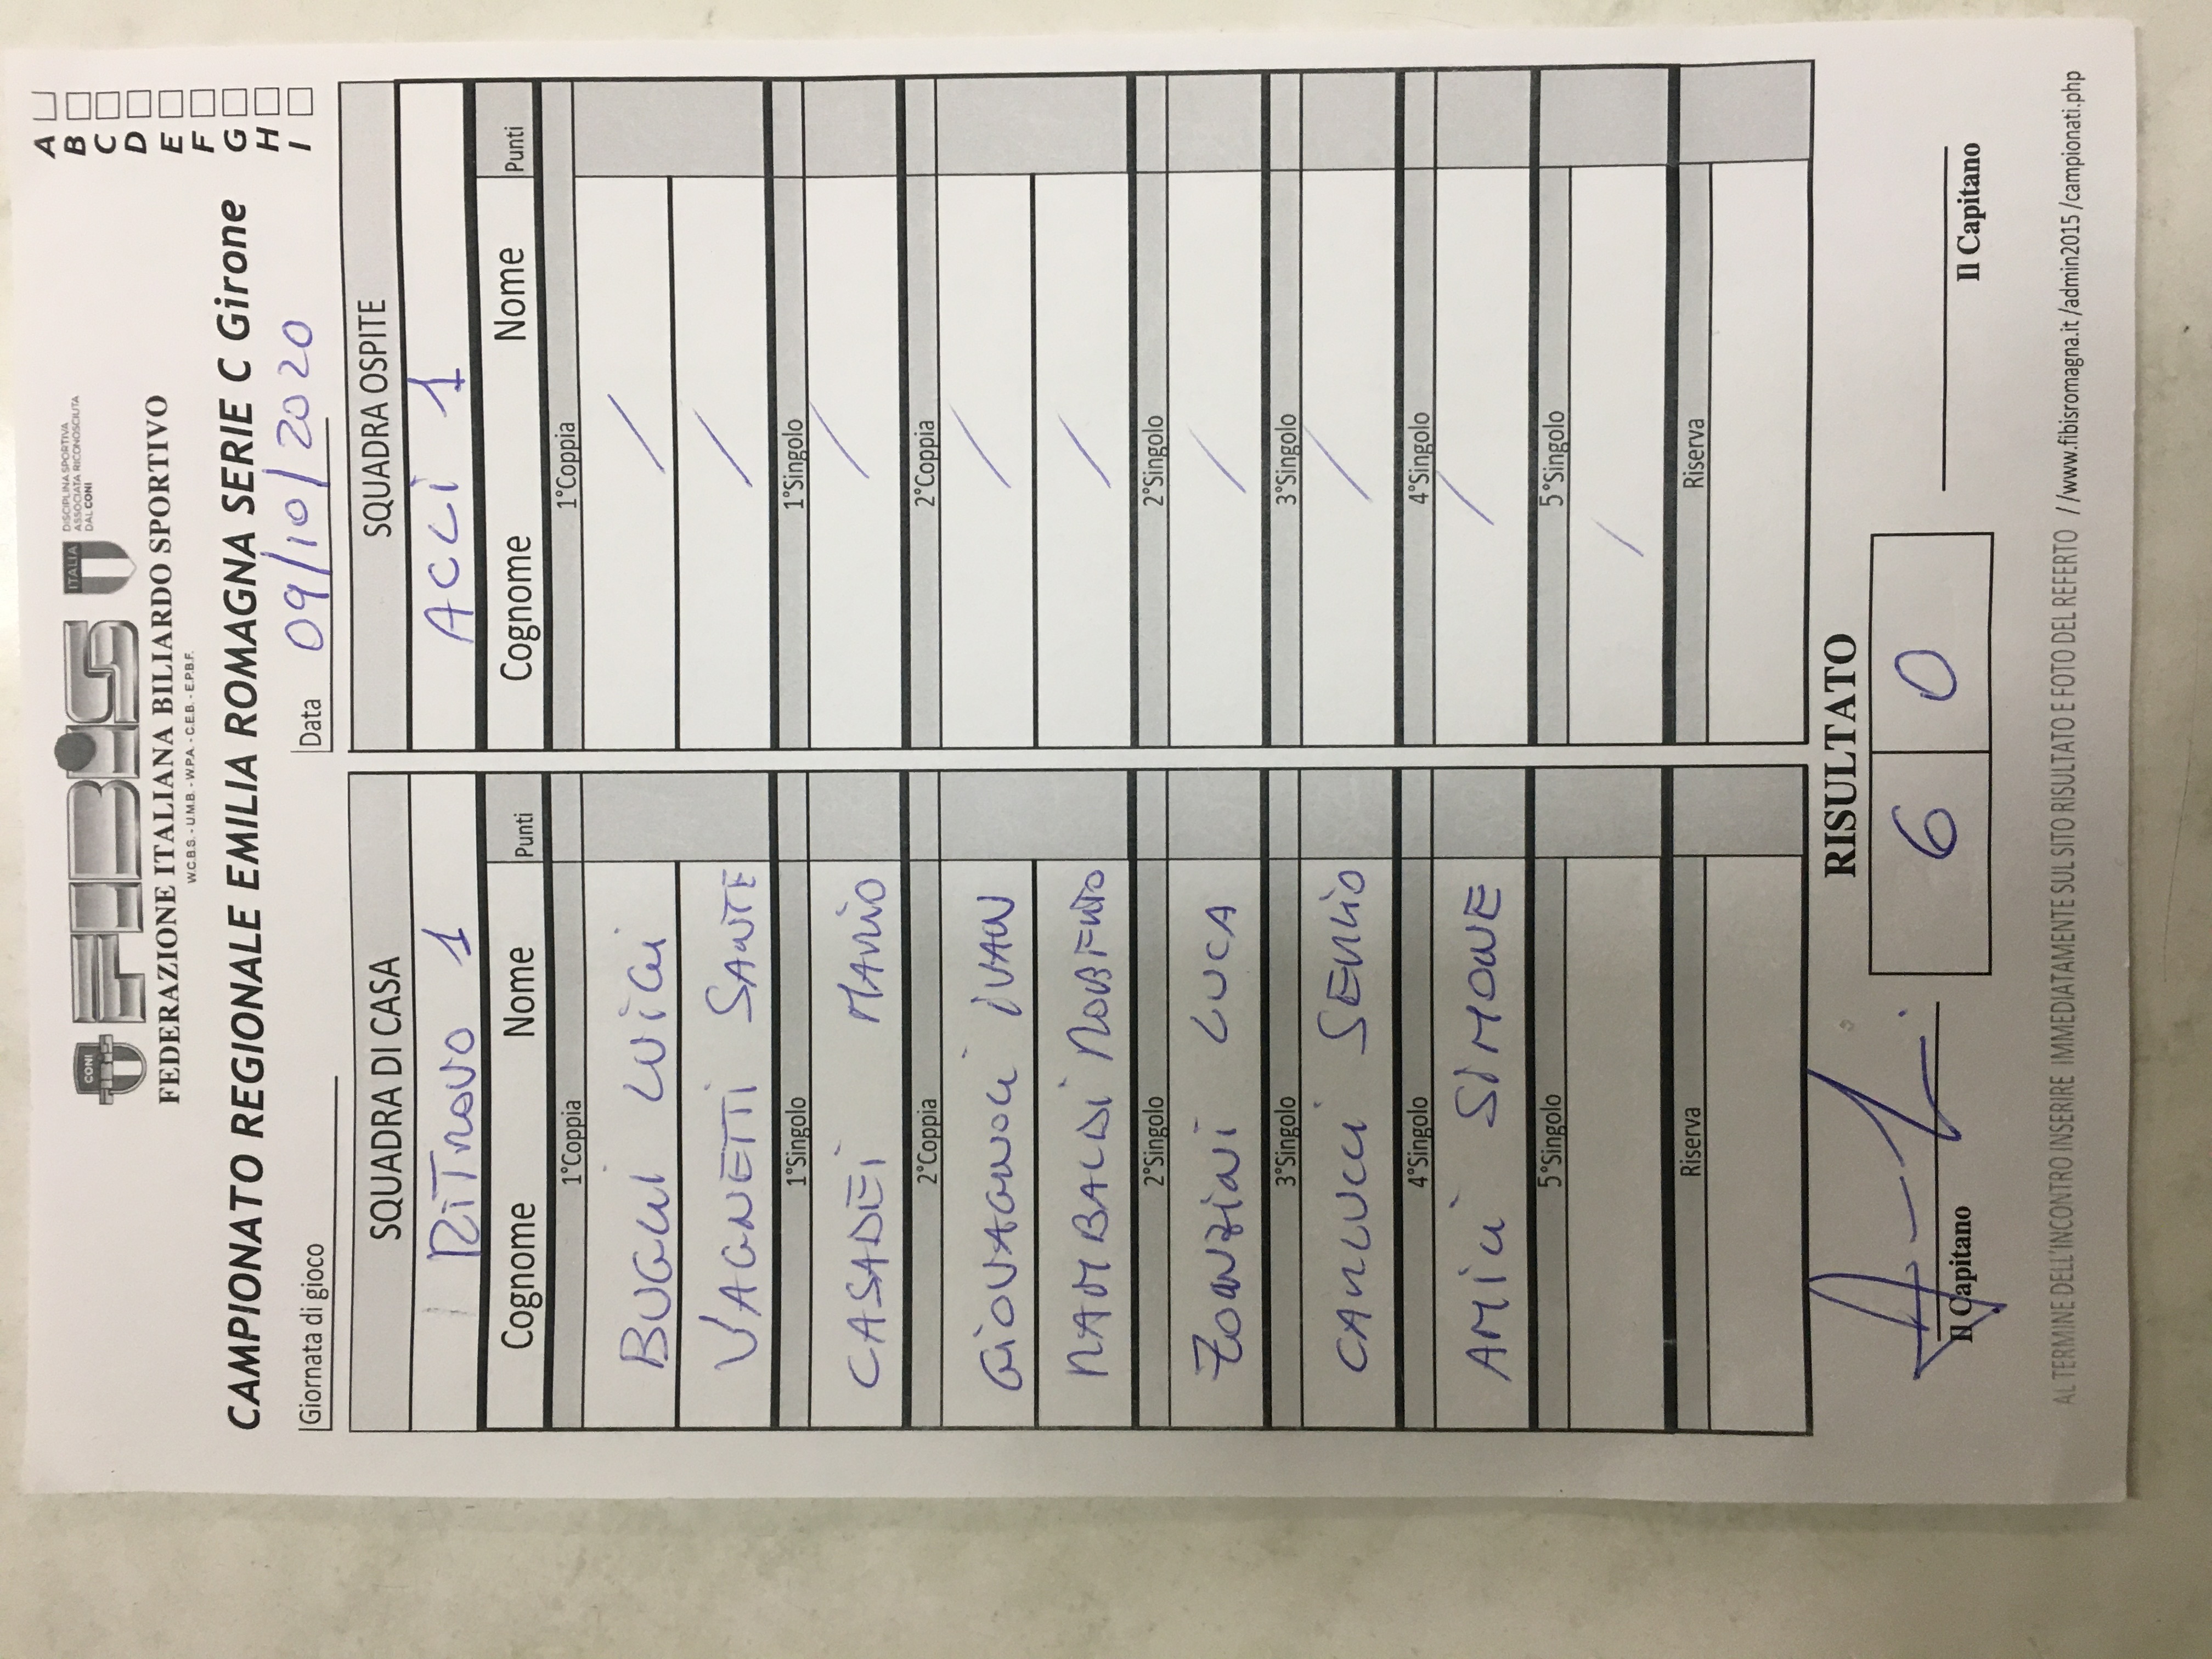 CONI
FIBiS
ITALIA
DISCIPLINA SPORTIVA
ASSOCIATA RICONOSCIUTA
DAL CONI
FEDERAZIONE ITALIANA BILIARDO SPORTIVO
W.C.B.S. - U.M.B. - W.P.A. - C.E.B. - E.P.B.F.
A
B
C
D
E
F
G
H
I
CAMPIONATO REGIONALE EMILIA ROMAGNA SERIE C Girone
Giornata di gioco
Data 09/10/2020
SQUADRA DI CASA SQUADRA OSPITE
RiTROVO 1 ACLi 1
Cognome Nome Punti Cognome Nome Punti
1°Coppia 1°Coppia
BUGLI LUIGI /
VAGNETTI SANTE /
1°Singolo 1°Singolo
CASADEI MARIO /
2°Coppia 2°Coppia
GIOVAGNOLI IVAN /
RAMBALDI /
2°Singolo 2°Singolo
ZONZINI LUCA /
3°Singolo 3°Singolo
CARLUCCI SERGIO /
4°Singolo 4°Singolo
AMICI SIMONE /
5°Singolo 5°Singolo
/
Riserva Riserva
RISULTATO
6 0
Il Capitano Il Capitano
AL TERMINE DELL'INCONTRO INSERIRE IMMEDIATAMENTE SUL SITO RISULTATO E FOTO DEL REFERTO //www.fibisromagna.it/admin2015/campionati.php